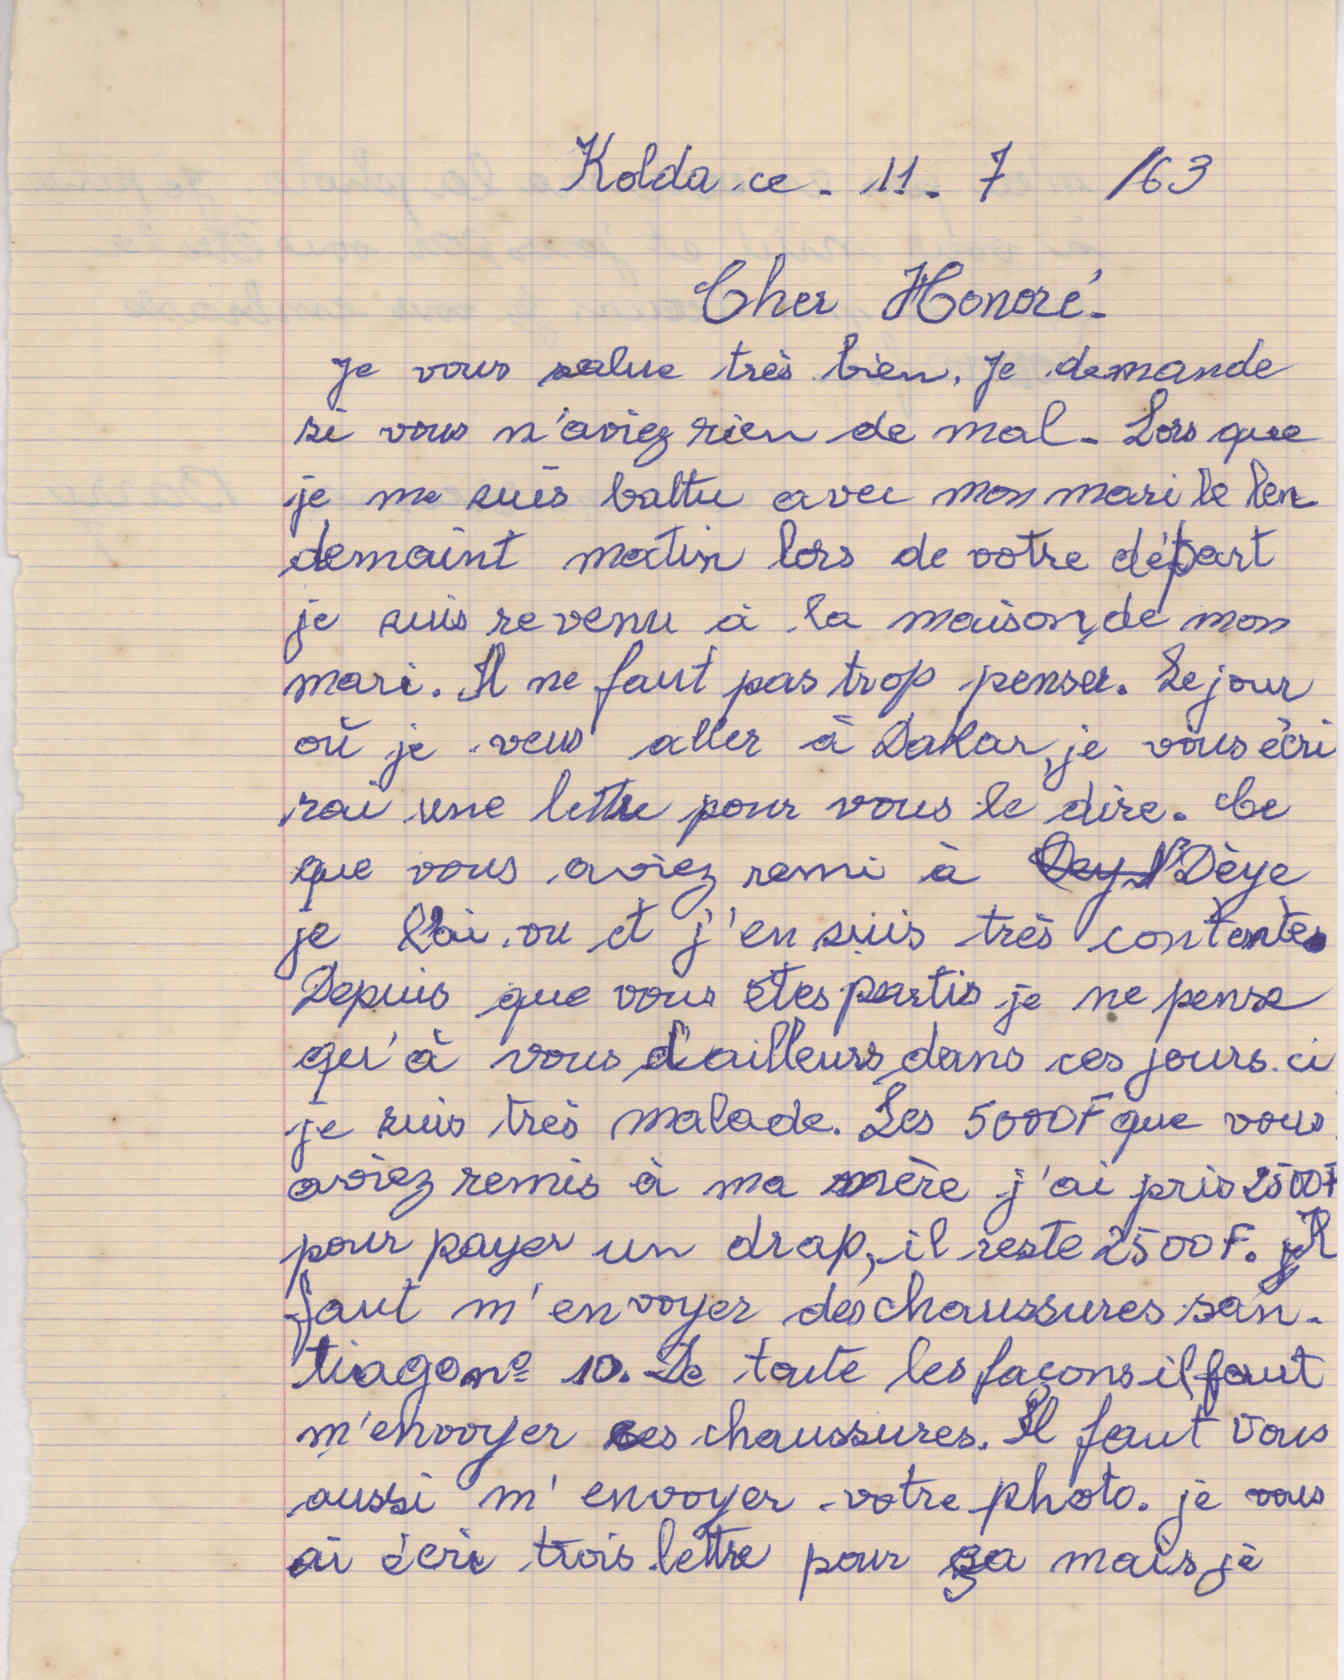 Kolda ce - 11 - 7 /63
Cher Honoré -
Je vous salue très bien. Je demande
si vous n'aviez rien de mal - Lors que
je me suis battu avec mon mari le len
demaint matin lors de votre départ
je suis revenu à la maison, de mon
mari. Il ne faut pas trop penser. Le jour
où je veus aller à Dakar, je vous écri
rai une lettre pour vous le dire. Ce
que vous aviez remi à Dèye
je l'ai vu et j'en suis très contente.
Depuis que vous êtes partis je ne pense
qu'à vous d'ailleurs, dans ces jours-ci
je suis très malade. Les 5000F que vous
aviez remis à ma mère j'ai pris 2500F
pour payer un drap, il reste 2500F. Il
faut m'envoyer des chaussures san-
tiago nº 10. De toute les façons il faut
m'envoyer ces chaussures. Il faut vous
aussi m'envoyer votre photo. je vous
ai écri trois lettre pour ça mais je